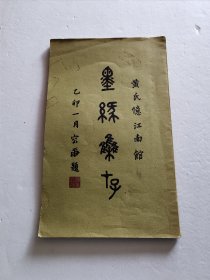 黄氏憶江南館
墨緣集存
乙卯一月題